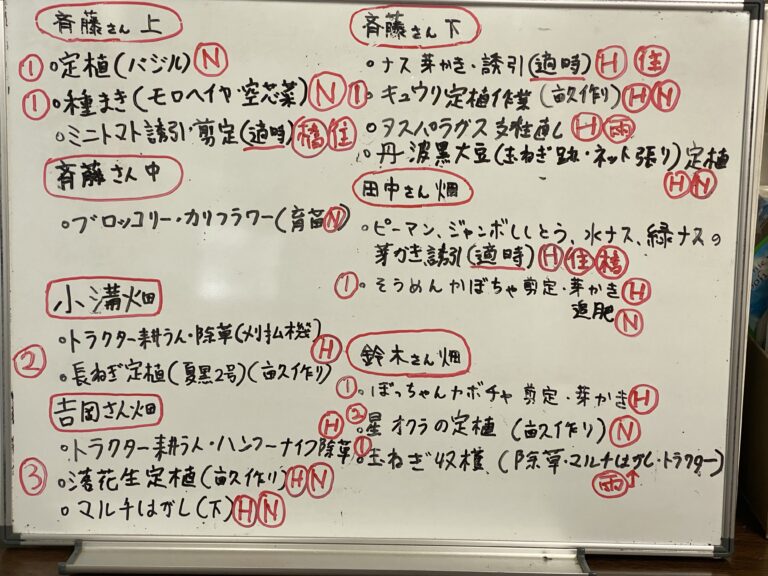 斉藤さん 上
① ○定植(バジル) Ⓝ
① ○種まき(モロヘイヤ・空芯菜) Ⓝ
○ミニトマト誘引・剪定(適時) 橋 住
斉藤さん中
○ブロッコリー・カリフラワー(育苗Ⓝ)
小溝畑
○トラクター耕うん・除草(刈払機) Ⓗ
② ○長ねぎ定植(夏黒2号)(畝作り)
吉岡さん畑
○トラクター耕うん・ハンマーナイフ除草 Ⓗ
③ ○落花生定植(畝作り) Ⓗ Ⓝ
○マルチはがし(下) Ⓗ Ⓝ
斉藤さん 下
○ナス芽かき・誘引(適時) Ⓗ 住
① ○キュウリ定植作業(畝作り) Ⓗ Ⓝ
○アスパラガス支柱直し Ⓗ 雨
○丹波黒大豆(玉ねぎ跡・ネット張り)定植
Ⓗ Ⓝ
田中さん畑
○ピーマン、ジャンボししとう、水ナス、緑ナスの
芽かき誘引(適時) Ⓗ 住 橋
① ○そうめんかぼちゃ剪定・芽かき Ⓗ
追肥 Ⓝ
鈴木さん畑
① ○ぼっちゃんカボチャ 剪定・芽かき Ⓗ
② ○星オクラの定植 (畝作り) Ⓝ
① ○玉ねぎ収穫 (除草・マルチはがし・トラクター)
雨↑